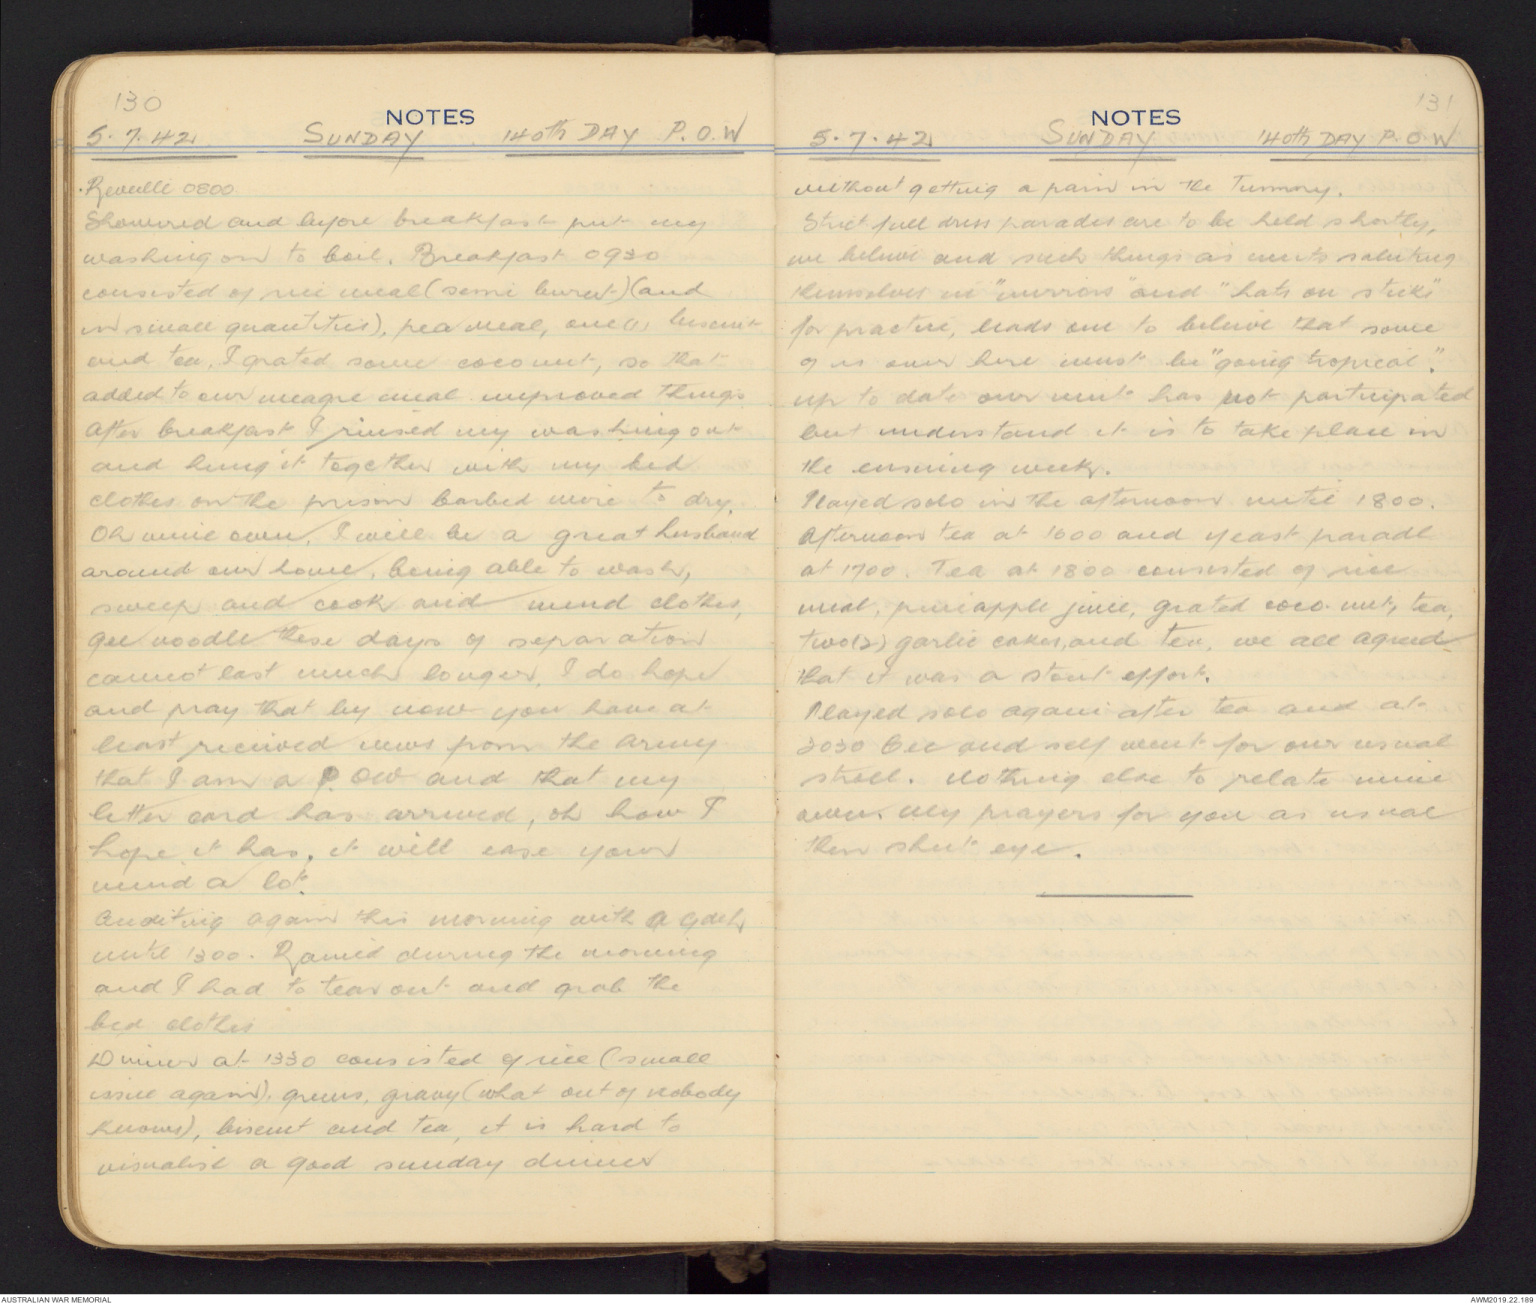 130
NOTES
5.7.42 SUNDAY 140th DAY P.O.W
Reveille 0800
Showered and before breakfast put my
washing on to boil. Breakfast 0930
consisted of rice meal (semi burnt) (and
in small quantities), pea meal, one (1) biscuit
and tea. I grated some coconut, so that
added to our meagre meal improved things.
After breakfast I rinsed my washing out
and hung it together with my bed
clothes on the prison barbed wire to dry.
Oh mine own, I will be a great husband
around our home, being able to wash,
sweep and cook and mend clothes,
gee noodle these days of separation
cannot last much longer, I do hope
and pray that by now you have at
least received news from the Army
that I am a P.OW and that my
letter card has arrived, oh how I
hope it has, it will ease your
mind a lot.
Auditing again this morning with
until 1300. Rained during the morning
and I had to tear out and grab the
bed clothes
Dinner at 1330 consisted of rice (small
issue again), greens, gravy (what out of nobody
knows), biscuit and tea, it is hard to
visualise a good sunday dinner
131
NOTES
5.7.42 SUNDAY 140th DAY P.O.W
without getting a pain in the Tummy.
Strict full dress parades are to be held shortly,
we believe and such things as units saluting
themselves in "mirrors" and "hats on sticks"
for practice, leads one to believe that some
of us over here must be "going tropical".
up to date our unit has not participated
but understand it is to take place in
the ensuing week.
Played solo in the afternoon until 1800.
Afternoon tea at 1600 and yeast parade
at 1700. Tea at 1800 consisted of rice
meal, pineapple juice, grated coco-nut, tea,
two(2) garlic cakes, and tea, we all agreed
that it was a stout effort.
Played solo again after tea and at
2030 Cec and self went for our usual
stroll. Nothing else to relate mine
own. My prayers for you as usual
then shut eye.
AUSTRALIAN WAR MEMORIAL
AWM2019.22.189